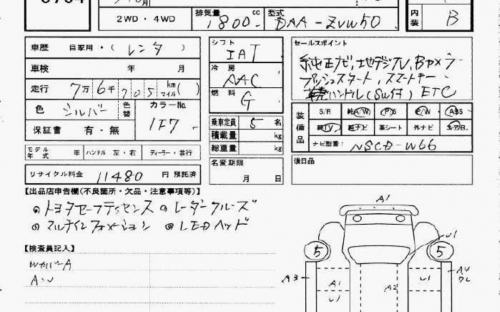 2WD・4WD 排気量 1800 cc 型式 DAA-ZVW50 内装 B
車歴 自家用・(レンタ) シフト IAT セールスポイント
車検 年 月 冷房 AAC 純正ナビ,地デジTV,Bカメラ
走行 7万6千705 km マイル 燃料 G プッシュスタート,スマートキー
色 シルバー カラーNo. 1F7 革巻ハンドル(SW付) ETC
保証書 有・無 乗車定員 5名 装備品 S/R 純A/W P/S P/W ABS
積載量 kg 純TV 純ナビ 革シート 外ナビ エアB
モデル年式 年 ハンドル 左・右 ディーラー・並行 総重量 kg ナビ型番 NSCD-W66
リサイクル料金 11480 円 預託済 名変期限 月 日 後日品
【出品店申告欄(不良箇所・欠品・注意事項等)】
◎トヨタセーフティセンス ◎レーダークルーズ
◎マルチインフォメーション ◎LEDヘッド
【検査員記入】
WカバーA
A・U
A1
5 5
U1
A3
A1
A2
U1